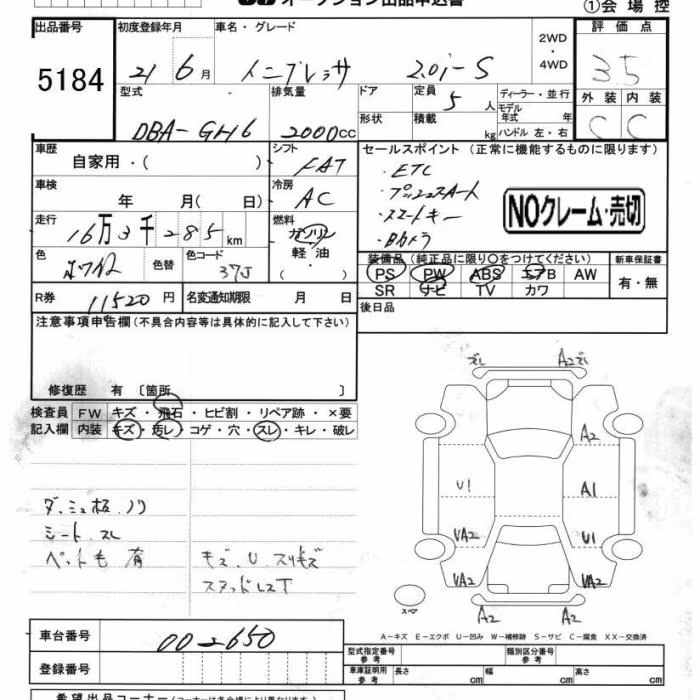 オークション出品申込書
①会場控
出品番号
5184
初度登録年月
21 6月
車名・グレード
インプレッサ 2.0i-S
2WD・4WD
評価点
3.5
型式
DBA-GH6
排気量
2000cc
ドア
形状
定員
5人
積載
kg
ディーラー・並行
モデル年式 年
ハンドル 左・右
外装 内装
C C
車歴
自家用・( )
シフト
FAT
セールスポイント (正常に機能するものに限ります)
・ETC
・プッシュスタート
・スマートキー
・Bカメラ
NOクレーム・売切
車検
年 月( 日)
冷房
AC
走行
16万3千285km
燃料
ガソリン
軽油
( ・ )
色
色替
色コード
37J
装備品 (純正品に限り○をつけてください)
PS PW ABS エアB AW
SR ナビ TV カワ
新車保証書
有・無
R券
11520円
名変通知期限 月 日
後日品
注意事項申告欄(不具合内容等は具体的に記入して下さい)
修復歴 有 〔箇所 〕
検査員記入欄
FW キズ・飛石・ヒビ割・リペア跡・×要
内装 キズ・汚レ・コゲ・穴・スレ・キレ・破レ
ダッシュ板.ノリ
シート.スレ
ペット毛 有
キズ.U.スリキズ
スタッドレスT
ズレ A2ズレ
A2
U1 A1
UA2 U1
UA2 UA2
A2 A2
スペア
A-キズ E-エクボ U-凹み W-補修跡 S-サビ C-腐食 XX-交換済
車台番号
002650
登録番号
型式指定番号 参考
類別区分番号 参考
車庫証明用 参考
長さ cm
幅 cm
高さ cm
希望出品コーナー